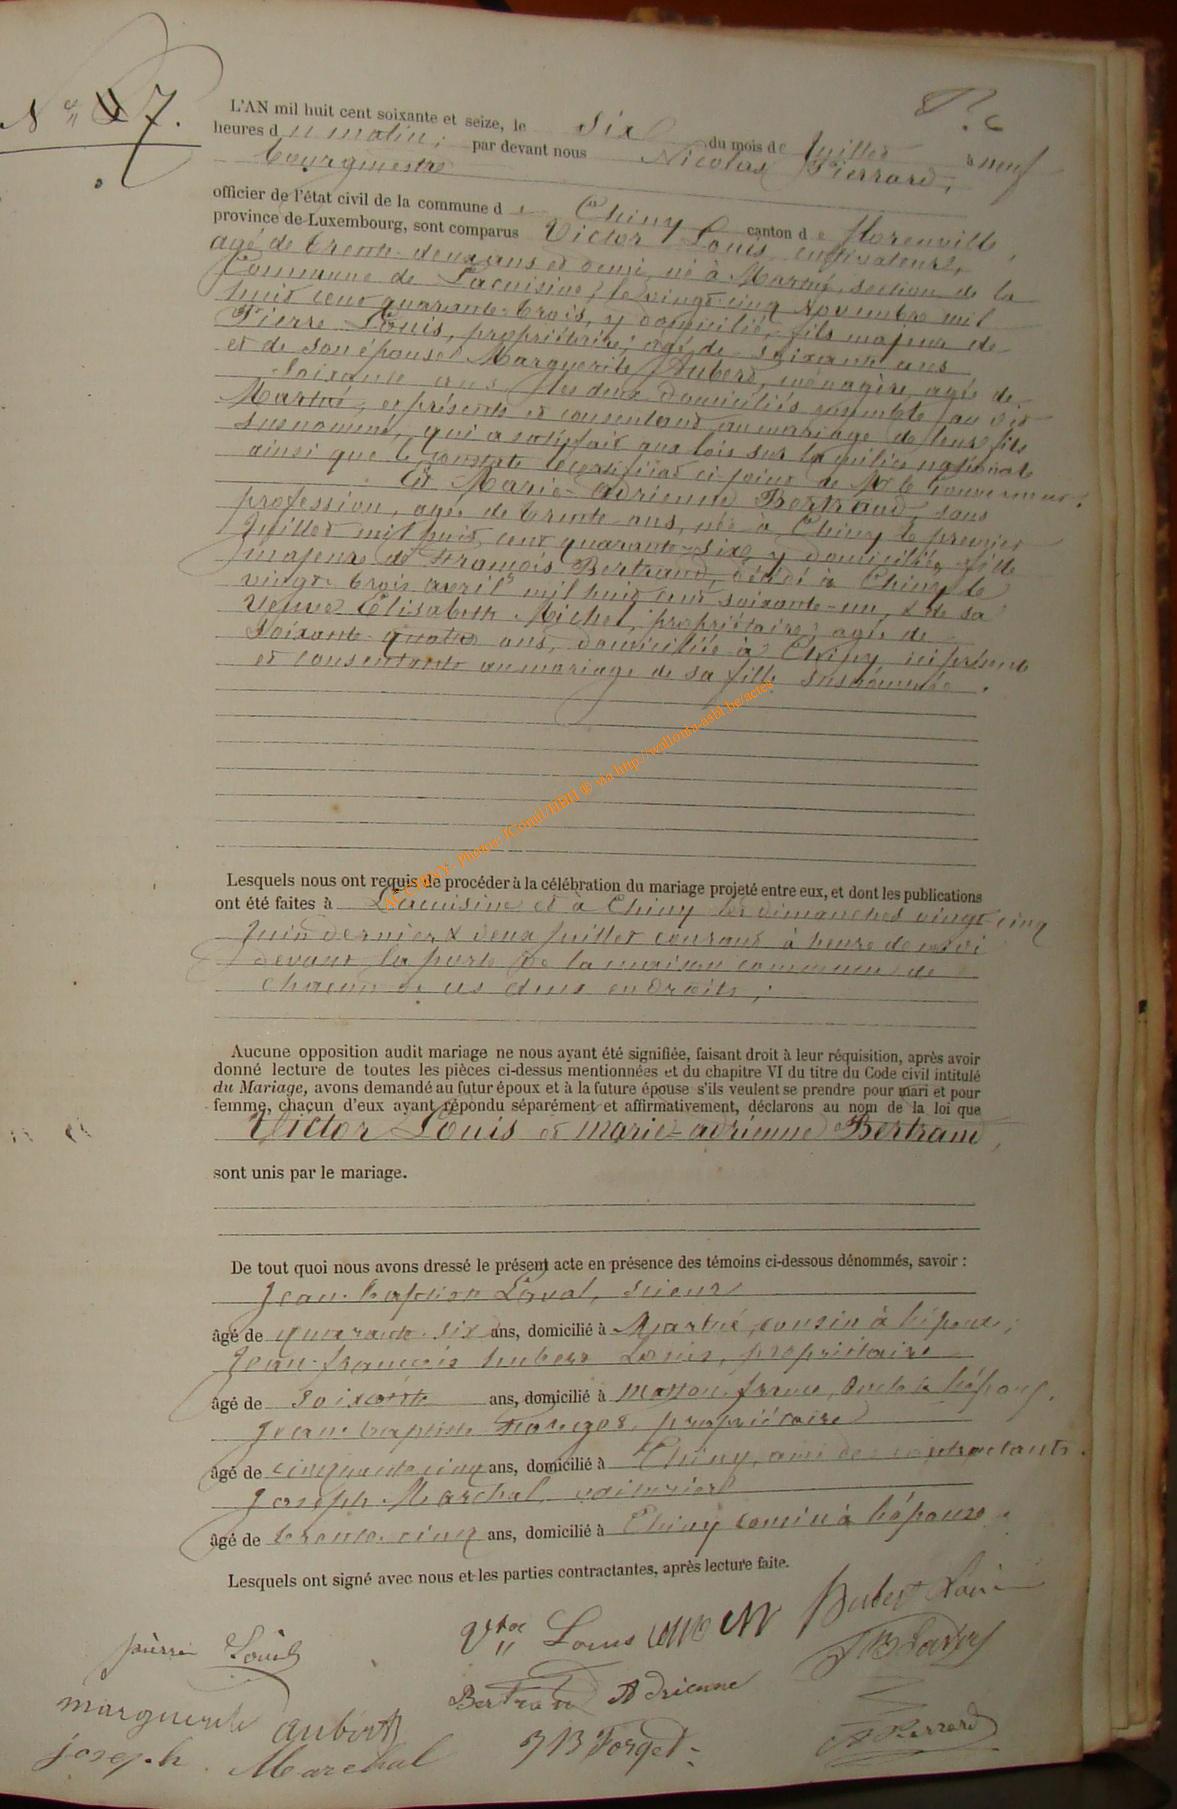 N° 7.
L'AN mil huit cent soixante et seize, le six du mois de Juillet à neuf
heures du matin, par devant nous Nicolas Pierrard,
bourgmestre
officier de l'état civil de la commune de Chiny canton de florenville,
province de Luxembourg, sont comparus Victor Louis, cultivateur,
agé de trente-deux ans et demi, né à Martué, section de la
Commune de Lacuisine, le vingt-cinq Novembre mil
huit cent quarante-trois, y domicilié, fils majeur de
Pierre Louis, propriétaire, agé de soixante ans
et de son épouse Marguerite Aubert, ménagère, agée de
soixante ans, les deux domiciliés ensemble au dit
Martué, ci présents et consentant au mariage de leur fils
susnommé, qui a satisfait aux lois sur la milice nationale
ainsi que le constate le certificat ci-joint de Mr le Gouverneur.
Et Marie-adrienne Bertrand, sans
profession, agée de trente ans, née à Chiny le premier
Juillet mil huit cent quarante-six, y domiciliée, fille
majeure de François Bertrand, décédé à Chiny le
vingt-trois avril mil huit cent soixante-un, & de sa
veuve Elisabeth Michel, propriétaire, agée de
soixante-quatre ans, domiciliée à Chiny, ici présente
et consentante au mariage de sa fille susnommée.
Lesquels nous ont requis de procéder à la célébration du mariage projeté entre eux, et dont les publications
ont été faites à Lacuisine et à Chiny les dimanches vingt-cinq
Juin dernier & deux Juillet courant à heure de midi
devant la porte de la maison commune de
chacun de ces deux endroits;
Aucune opposition audit mariage ne nous ayant été signifiée, faisant droit à leur réquisition, après avoir
donné lecture de toutes les pièces ci-dessus mentionnées et du chapitre VI du titre du Code civil intitulé
du Mariage, avons demandé au futur époux et à la future épouse s'ils veulent se prendre pour mari et pour
femme, chacun d'eux ayant répondu séparément et affirmativement, déclarons au nom de la loi que
Victor Louis et marie-adrienne Bertrand,
sont unis par le mariage.
De tout quoi nous avons dressé le présent acte en présence des témoins ci-dessous dénommés, savoir :
Jean-baptiste Laval,
âgé de quarante-six ans, domicilié à Martué, cousin à l'époux;
Jean-françois hubert Louis, propriétaire
âgé de soixante ans, domicilié à france, oncle à l'époux.
Jean-baptiste propriétaire
âgé de cinquante cinq ans, domicilié à Chiny, ami des contractants.
Joseph Marchal,
âgé de trente-cinq ans, domicilié à Chiny cousin à l'épouse.
Lesquels ont signé avec nous et les parties contractantes, après lecture faite.
pierre Louis Louis Hubert Louis
JB Laval
marguerite aubert Bertrand Adrienne
joseph Marchal JB Forget Pierrard
via http://wallonia-asbl.be/actes